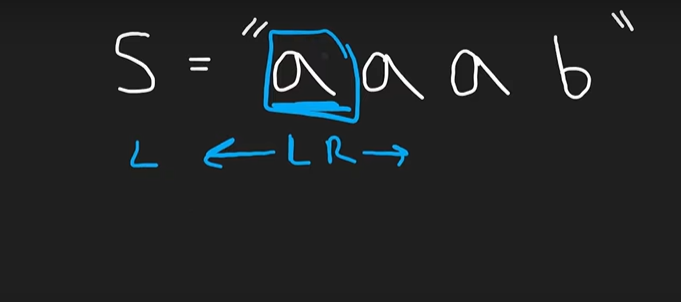 S = "a a a b"
L ← L R →